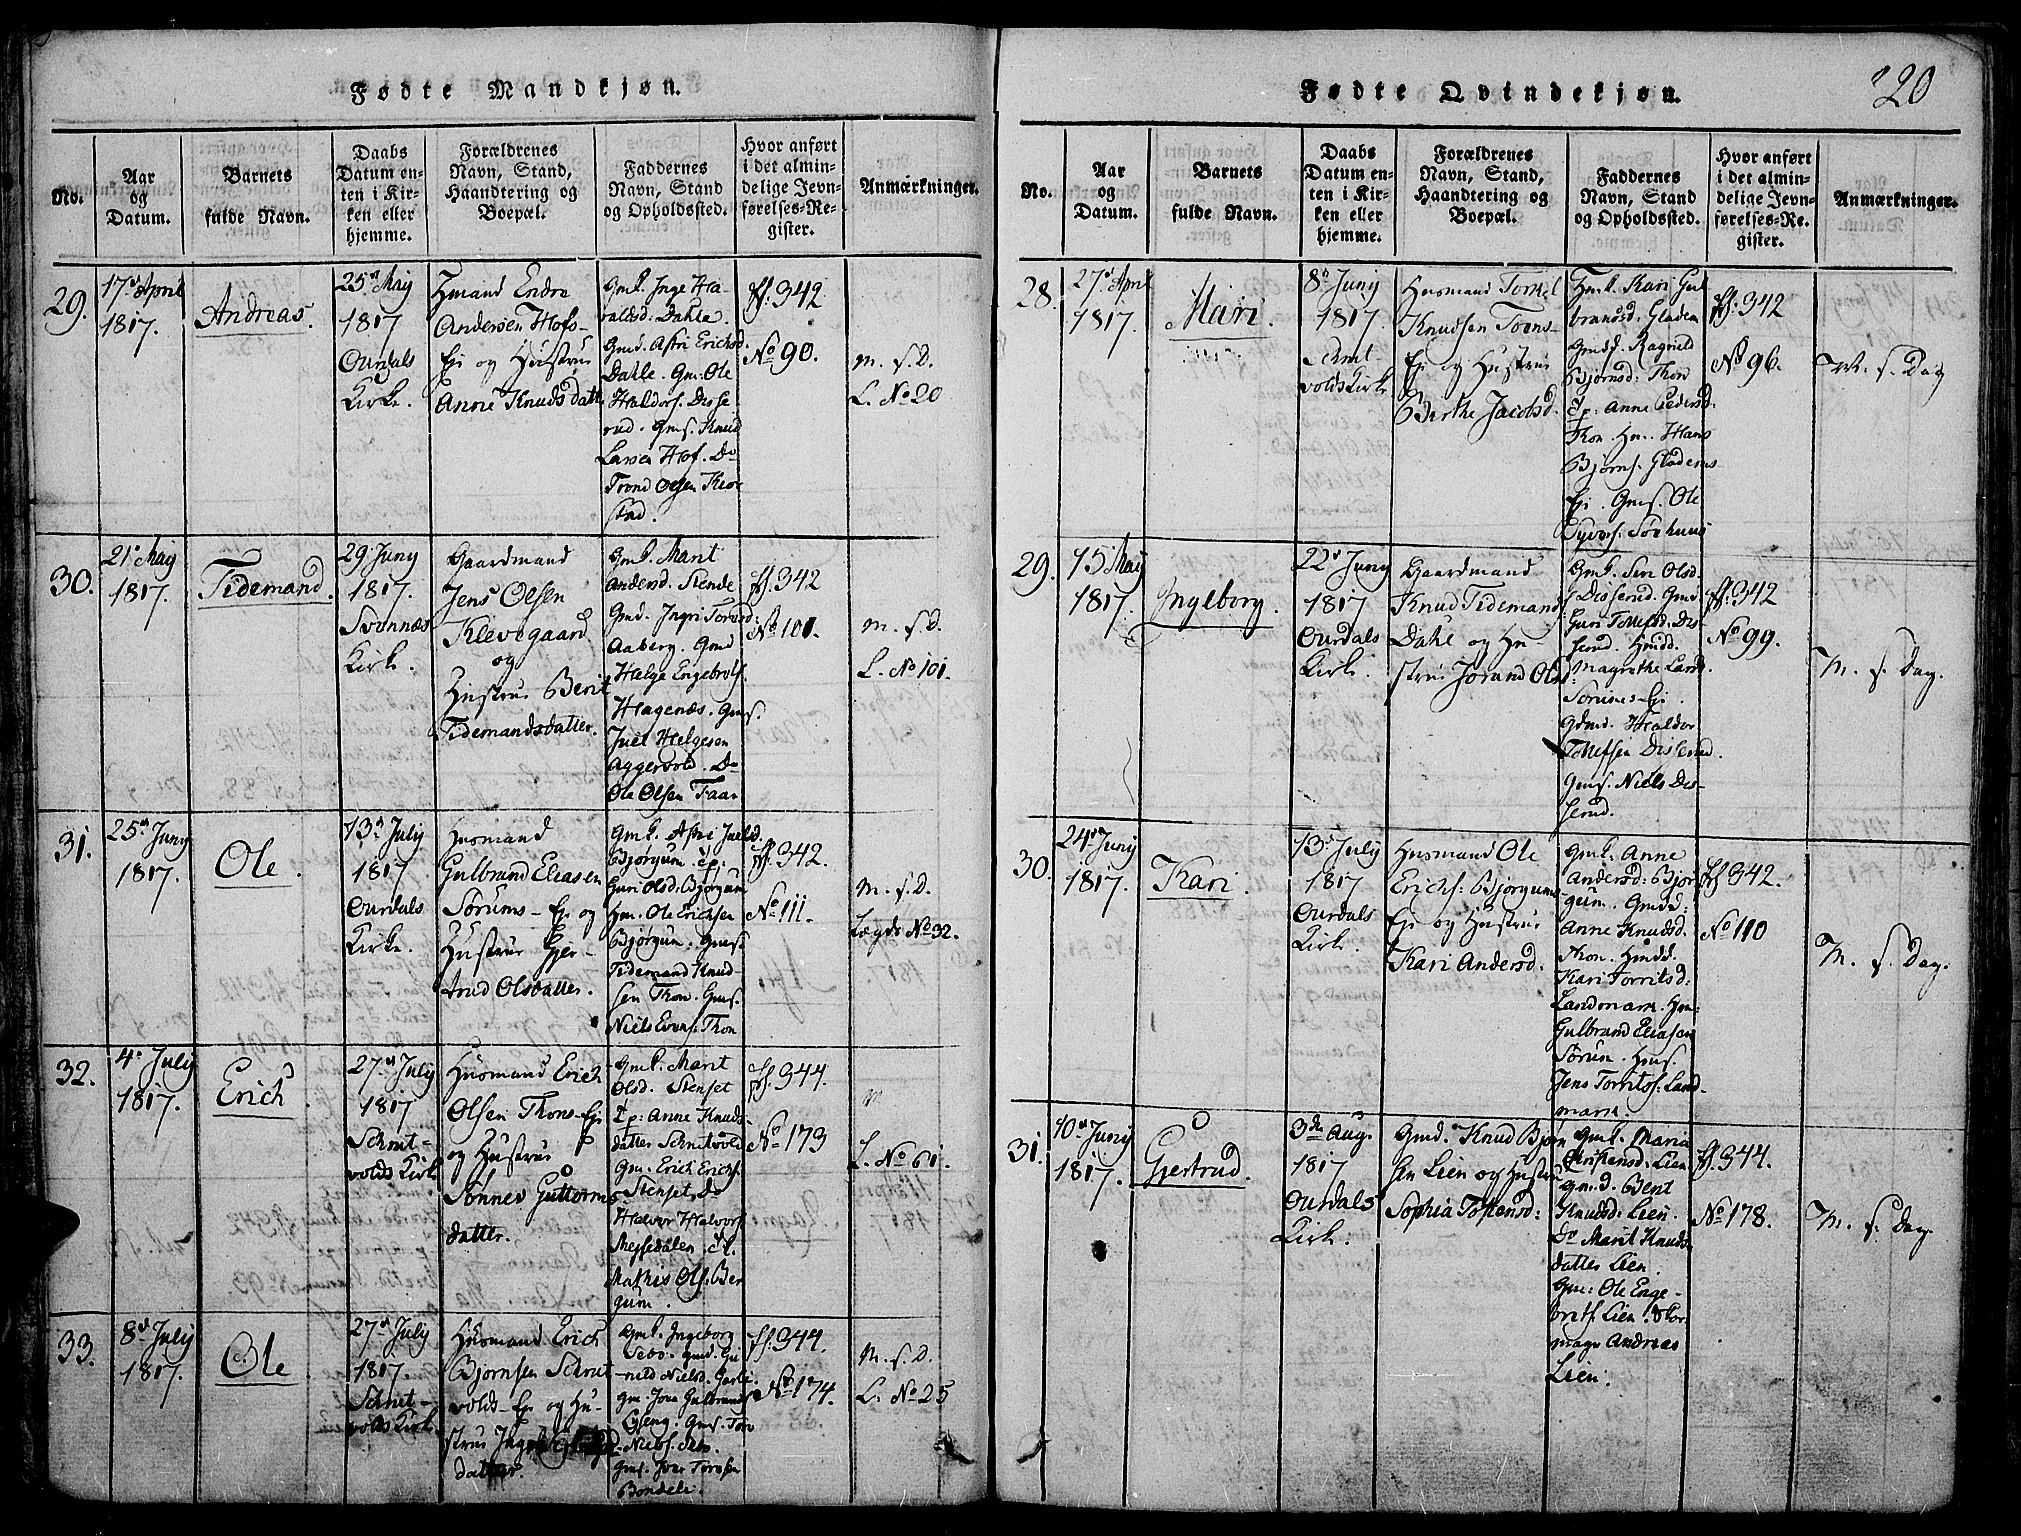 Fødte Mandkjøn.
No.
Aar
og
Datum.
Barnets
fulde Navn.
Daabs
Datum en-
ten i Kir-
ken eller
hjemme.
Forældrenes
Navn, Stand,
Haandtering og
Boepæl.
Faddernes
Navn, Stand
og Opholdssted.
Hvor anført
i det almin-
delige Jevn-
førelses-Re-
gister.
Anmærkninger.
29.
17de April
1817.
Andreas.
25de May
1817
Ourdals
Kirke.
Hmand Endre
Andersen Hofs-
Eje og Hustrue
Anne Knudsdatter
Gmk. Inge Ha-
valdsd: Dahle.
Gmd. Astri Erichsd.
Dahle. Gm: Ole
Haldors. Disse
rud. Gms. Knud
Larsen Hof. Do
Trond Olsen
stad.
ff. 342
No 90.
m. s. D.
L. No 20
30.
21de May
1817.
Tidemand.
29 Juny
1817.
Svennæs
Kirke.
Gaardmand
Jens Olsen
Klevegaard
og
Hustrue Berit
Tidemandsdatter.
Gmk. Marit
Andersd. Stende
Gmd. Ingri
Aaberg. Gmd
Helge Engebrets.
Hagenæs. Gms.
Juel Helgesen
Aggervold. Do
Ole Olsen Faar
ff. 342
No 101.
m. s. D.
L. No 101.
31.
25de Juny
1817.
Ole.
13de July
1817
Ourdals
Kirke.
Husmand
Gulbrand Eliasen
Sørums- Eje og
Hustrue Gjer-
trud Olsdatter.
Gmk. Astri Juelsd.
Bjørgum. Ep:
Guri Olsd: Bjørgum
Hm. Ole Erichsen
Bjørgum. Gms:
Tidemand Knud-
sen Thon. Gms.
Niels Evens. Thon
ff. 342.
No 111.
m. s. D.
Lægds No 32.
32.
4de July
1817.
Erich.
27de July
1817
Schnit-
volds Kirke
Husmand Erich
Olsen Thons-Eje
og Hustrue
Sønnev Guttorms
datter.
Gmk. Marit
Olsd. Stenset
Ep: Anne Knuds-
datter Schnitvold
Gm. Erich Erichs.
Stenset. Do
Halvor Halvors.
Mejsedalen. Ek.
Mathis Ols. Ber
gum.
ff. 344.
No 173
m
L. No 61.
33.
8de July
1817.
Ole.
27de July
1817.
Schnit-
volds Kirke.
Husmand Erich
Bjørnsen Schnit
volds- Eje og Hu-
strue
datter.
Gmk. Ingeborg
Sebo. Gmd. Gu
nild Nielsd.
gm. Joen Gulbrands
Gms. Tore
Niels. Sebo.
Gms. Iver
Bondeli.
ff. 344.
No 174.
m. s. D.
L. No 25
Fødte Qvindekjøn.
120
No.
Aar
og
Datum.
Barnets
fulde Navn.
Daabs
Datum en-
ten i Kir-
ken eller
hjemme.
Forældrenes
Navn, Stand,
Haandtering og
Boepæl.
Faddernes
Navn, Stand
og Opholdssted.
Hvor anført
i det almin-
delige Jevn-
førelses-Re-
gister.
Anmærkninger.
28.
27de April
1817.
Mari.
8de Juny
1817.
Schnit-
volds Kirke
Husmand Torkel
Knudsen Tons-
Eje og Hustrue
Birthe Jacobsd.
Hmk. Kari Gul
brandsd: Gladem
Gmdf. Ragnild
Bjørnsd: Thon
Ep: Anne Pedersd.
Thon. Hm. Hans
Bjørns. Gladems
Eje. Gms. Ole
Syvers: Sørhuus
ff. 342
No 96.
M. s. Dag
29.
15 May
1817.
Ingeborg.
22de Juny
1817
Ourdals
Kirke.
Gaardmand
Knud Tidemands.
Dahl og Hu-
strue Jørand Olsd
Gmk. Siri Olsd.
Disserud. Gmd
Guri Tollefsd. Dis-
serud. Hmdd.
Magrethe Land.
Sørums-Eje.
Gdmd. Haldor
Tollefsen Disserud
Gms. Niels Dis-
serud.
ff. 342
No 99.
M. s. Dag.
30.
24de Juny
1817.
Kari.
13de July
1817
Ourdals
Kirke.
Husmand Ole
Erichs: Bjørgums
Eje og Hustrue
Kari Andersd.
Gmk. Anne
Andersd: Bjør
gum. Gmdd:
Anne Knudsd.
Thon. Hmdd.
Kari Torritsd:
Landmark. Hm:
Gulbrand Eliasen
Sørum. Hms.
Jens Torrits: Land
mark.
ff 342.
No 110
M. s. Dag.
31.
10de Juny
1817.
Gjertrud.
3de Aug.
1817
Ourdals
Kirke.
Gmd. Knud Bjørn
sen Lien og Hustrue
Sophia Tostensd:
Gmk. Maria
Christensd: Lien
Gmd. Berit
Knudsd: Lien.
Do Marit Knuds-
datter Lien.
Gm: Ole Enge-
brits. Lien.
Andreas
Lien.
ff. 344.
No 178.
M. s. Dag.